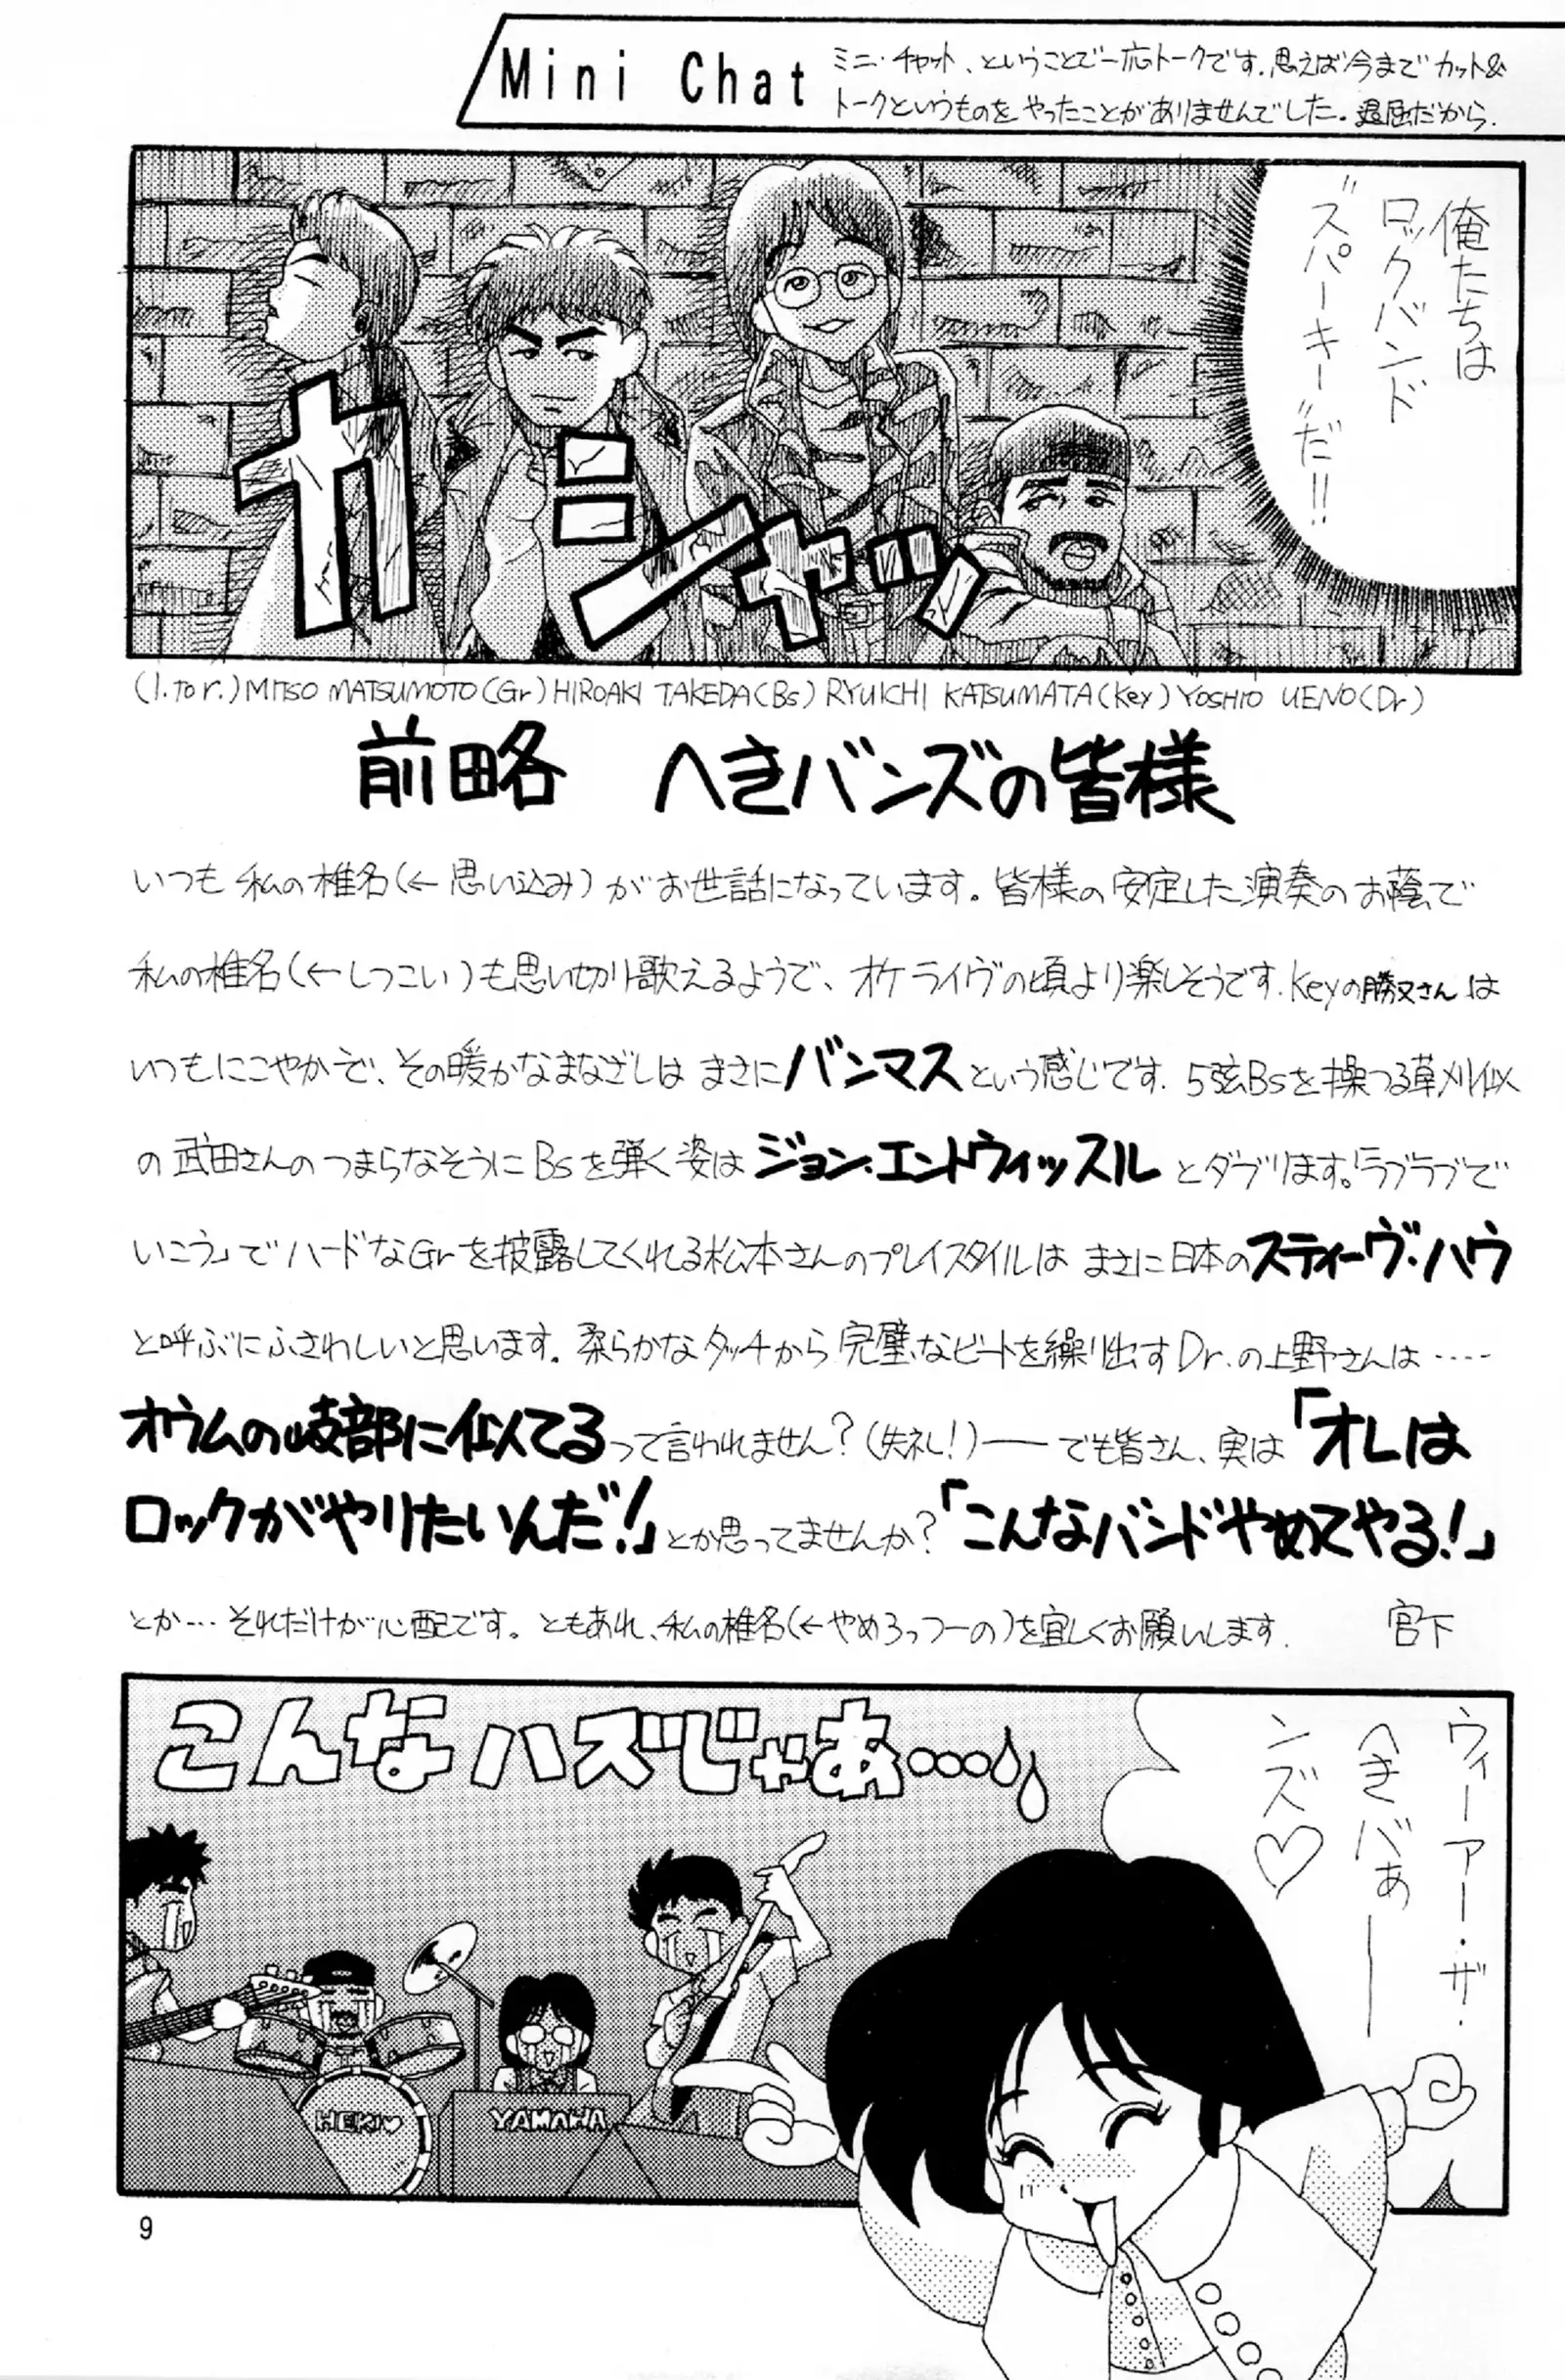 Mini Chat
ミニ・チャット、ということで一応トークです。思えば今までカット&
トークというものをやったことがありませんでした。退屈だから.
俺たちは
ロックバンド
"スパーキー"だ!!
ガシャッ
(l.TOr.)MITSO MATSUMOTO(Gr)HIROAKI TAKEDA(Bs)RYUICHI KATSUMATA(Key)YOSHIO UENO(Dr)
前略 へきバンズの皆様
いつも私の椎名(←思い込み)がお世話になっています。皆様の安定した演奏のお蔭で
私の椎名(←しつこい)も思い切り歌えるようで、オケライヴの頃より楽しそうです.Keyの勝又さんは
いつもにこやかで、その暖かなまなざしはまさにバンマスという感じです.5弦Bsを操つる草刈似
の武田さんのつまらなそうにBsを弾く姿はジョン・エントウィッスルとダブります。「ラブラブで
いこう」でハードなGrを披露してくれる松本さんのプレイスタイルはまさに日本のスティーヴ・ハウ
と呼ぶにふさわしいと思います。柔らかなタッチから完璧なビートを繰り出すDr.の上野さんは‥‥
オウムの岐部に似てるって言われません?(失礼!)――でも皆さん、実は「オレは
ロックがやりたいんだ!」とか思ってませんか?「こんなバンドやめてやる!」
とか…それだけが心配です。ともあれ、私の椎名(←やめろっつーの)を宜しくお願いします. 宮下
こんなハズじゃあ…
ウィーアー・ザ・
へきバぁ――
ンズ♡
HEKI♥
YAMAHA
9